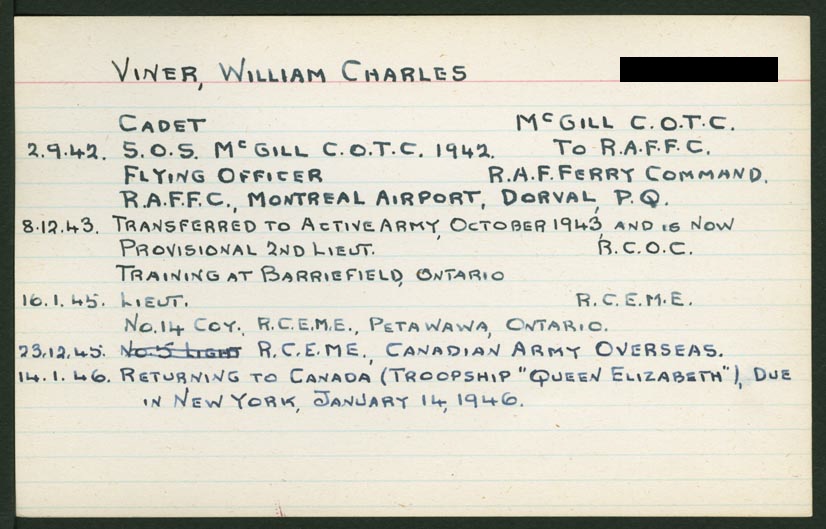 VINER, WILLIAM CHARLES
CADET McGILL C.O.T.C.
2.9.42. S.O.S. McGILL C.O.T.C. 1942. TO R.A.F.F.C.
FLYING OFFICER R.A.F. FERRY COMMAND.
R.A.F.F.C., MONTREAL AIRPORT, DORVAL, P.Q.
8.12.43. TRANSFERRED TO ACTIVE ARMY, OCTOBER 1943, AND IS NOW
PROVISIONAL 2ND LIEUT. R.C.O.C.
TRAINING AT BARRIEFIELD, ONTARIO
16.1.45. LIEUT. R.C.E.M.E.
No.14 COY., R.C.E.M.E., PETAWAWA, ONTARIO.
23.12.45. No.5 LIGHT R.C.E.ME., CANADIAN ARMY OVERSEAS.
14.1.46. RETURNING TO CANADA (TROOPSHIP "QUEEN ELIZABETH"), DUE
IN NEW YORK, JANUARY 14, 1946.